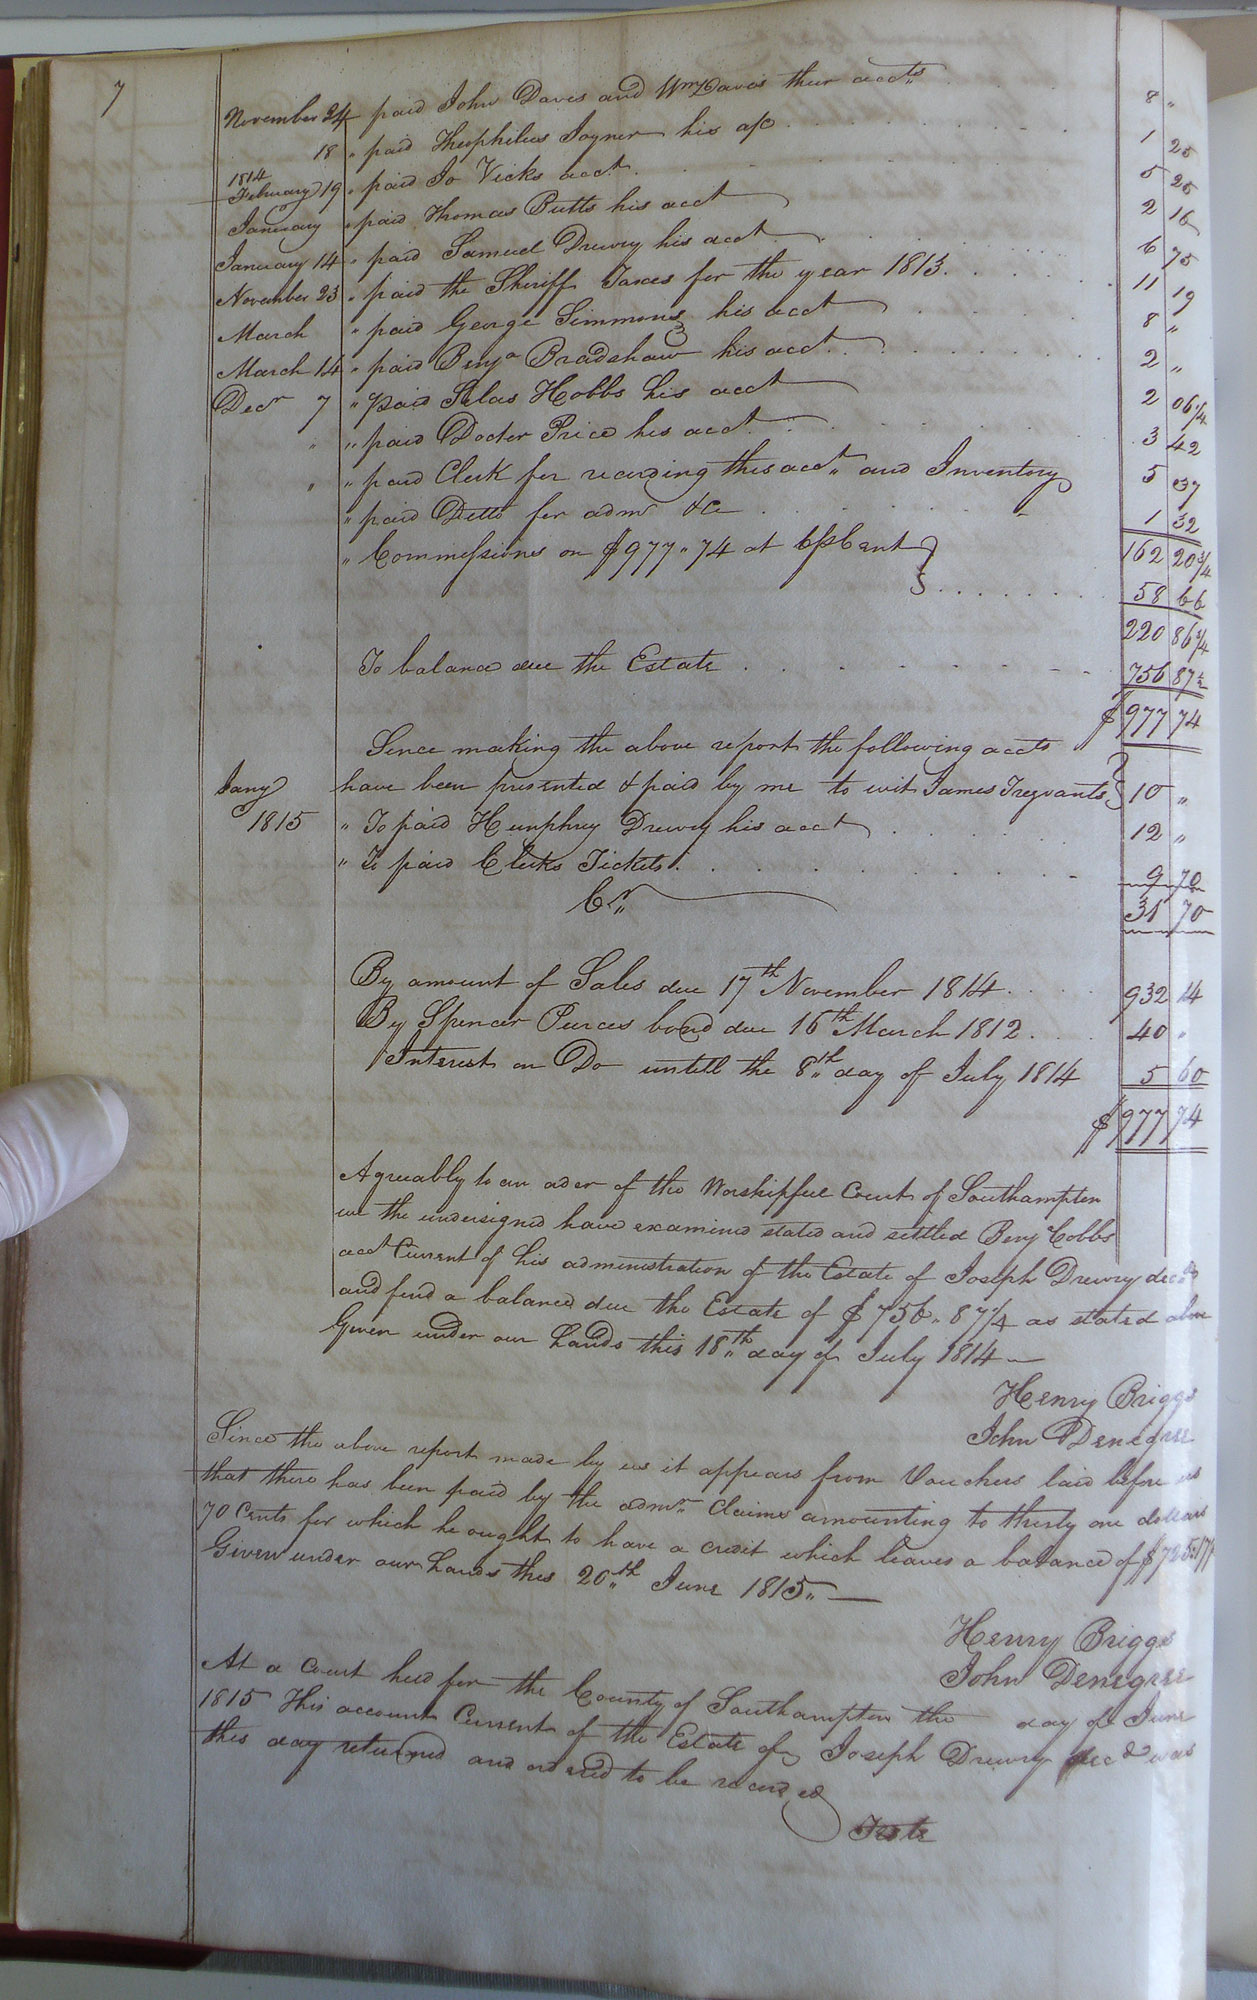 7
November 24 " paid John Daves and Wm Daves their accts . . 8 "
18 " paid Theophilus Joyner his a/c . . . 1 25
1814
February 19 " paid Jo Vicks acct . . . 5 25
January " paid Thomas Pretts his acct . . . 2 16
January 14 " paid Samuel Drewry his acct . . . 6 75
November 23 " paid the Sheriff Taxes for the year 1813 . . . 11 19
March " paid George Simmons his acct . . . 8 "
March 14 " paid Benja Bradshaw his acct . . . 2 "
Decr 7 " paid Silas Hobbs his acct . . . 2 06 1/4
" " paid Docter Price his acct . . . 3 42
" " paid Clerk for recording this acct " and Inventory 5 37
" paid Ditto for admr &c . . . 1 32
162 20 3/4
" Commissions on $977 " 74 at 6 p Cent } . . . 58 66
220 86 3/4
To balance due the Estate . . . 756 87 1/4
$ 977 74
Since making the above report the following accts
Jany have been presented & paid by me to wit James Trezvants } 10 "
1815 " To paid Humphrey Drewry his acct . . . 12 "
" To paid Clerks Tickets . . . 9 70
31 70
Cr "
By amount of Sales due 17th November 1814 . . . 932 14
By Spencer Pierces bond due 16th March 1812 . . . 40 "
Interest on Do untill the 8th day of July 1814 5 60
$ 977 74
Agreeably to an oder of the Worshipfull Court of Southampton
we the undersigned have examined stated and settled Benj Cobbs
acct Current of his administration of the Estate of Joseph Drewry decd
and find a balance due the Estate of $756 " 87 1/4 as stated above
Given under our hands this 18th day of July 1814
Henry Briggs
John Denegree
Since the above report made by us it appears from Vouchers laid before us
that there has been paid by the admr Claims amounting to thirty one dollars
70 Cents for which he ought to have a credit which leaves a balance of $725.17 1/4
Given under our hands this 20th June 1815 "
Henry Briggs
John Denegree
At a Court held for the County of Southampton the day of June
1815 This account Current of the Estate of Joseph Drewry decd was
this day returned and ordered to be recorded
Teste